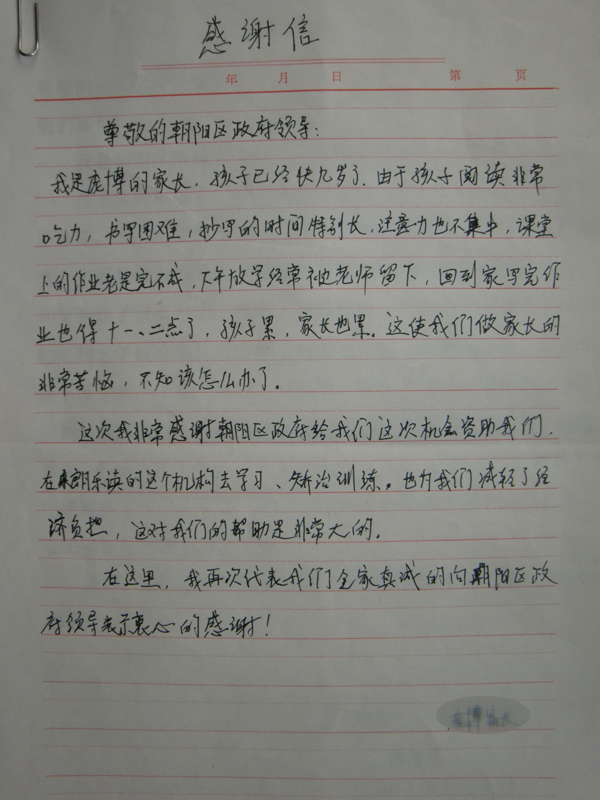 感谢信
年 月 日 第 页
尊敬的朝阳区政府领导：
我是庞博的家长，孩子已经快九岁了．由于孩子阅读非常
吃力，书写困难，抄写的时间特别长，注意力也不集中，课堂
上的作业老是完不成，下午放学经常被老师留下，回到家写完作
业也得十一、二点了，孩子累，家长也累．这使我们做家长的
非常苦恼，不知该怎么办了。
这次我非常感谢朝阳区政府给我们这次机会资助我们．
在朗乐读的这个机构去学习、矫治训练。也为我们减轻了经
济负担，这对我们的帮助是非常大的．
在这里，我再次代表我们全家真诚的向朝阳区政
府领导表示衷心的感谢！